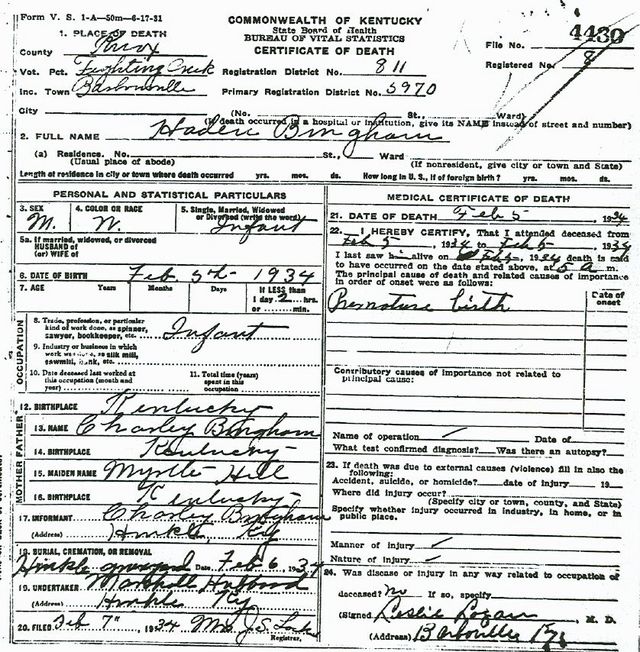 Form V. S. 1-A—50m—6-17-31
COMMONWEALTH OF KENTUCKY
State Board of Health
BUREAU OF VITAL STATISTICS
CERTIFICATE OF DEATH
File No. 4430
Registered No. 8
1. PLACE OF DEATH
County Knox
Vot. Pct. Fighting Creek Registration District No. 811
Inc. Town Barbourville Primary Registration District No. 5970
City (No. St., Ward)
(If death occurred in a hospital or institution, give its NAME instead of street and number)
2. FULL NAME Haden Bingham
(a) Residence. No. St., Ward
(Usual place of abode) (If nonresident, give city or town and State)
Length of residence in city or town where death occurred yrs. mos. ds. How long in U. S., if of foreign birth? yrs. mos. ds.
PERSONAL AND STATISTICAL PARTICULARS
3. SEX 4. COLOR OR RACE 5. Single, Married, Widowed or Divorced (write the word)
M. W. Infant
5a. If married, widowed, or divorced
HUSBAND of
(or) WIFE of
6. DATE OF BIRTH Feb 5th 1934
7. AGE Years Months Days If LESS than
1 day 2 hrs.
or min.
OCCUPATION
8. Trade, profession, or particular
kind of work done, as spinner,
sawyer, bookkeeper, etc. Infant
9. Industry or business in which
work was done, as silk mill,
sawmill, bank, etc.
10. Date deceased last worked at
this occupation (month and
year)
11. Total time (years)
spent in this
occupation
FATHER
12. BIRTHPLACE Kentucky
13. NAME Charley Bingham
14. BIRTHPLACE Kentucky
MOTHER
15. MAIDEN NAME Myrtle Hill
16. BIRTHPLACE Kentucky
17. INFORMANT Charley Bingham
(Address) Hinkle Ky
18. BURIAL, CREMATION, OR REMOVAL
Hinkle graveyard Date Feb 6, 1934
19. UNDERTAKER Marshall Hubbard
(Address) Hinkle Ky
20. FILED Feb 7", 1934 Mrs J. S. Lock
Registrar.
MEDICAL CERTIFICATE OF DEATH
21. DATE OF DEATH Feb 5, 1934
22. I HEREBY CERTIFY, That I attended deceased from
Feb 5, 1934 to Feb 5, 1934
I last saw him alive on Feb 5, 1934 death is said
to have occurred on the date stated above, at 5 A m.
The principal cause of death and related causes of importance
in order of onset were as follows:
Date of
onset
Premature birth
Contributory causes of importance not related to
principal cause:
Name of operation Date of
What test confirmed diagnosis? Was there an autopsy?
23. If death was due to external causes (violence) fill in also the
following:
Accident, suicide, or homicide? date of injury 19
Where did injury occur?
(Specify city or town, county, and State)
Specify whether injury occurred in industry, in home, or in
public place.
Manner of injury
Nature of injury
24. Was disease or injury in any way related to occupation of
deceased? No If so, specify
(Signed Leslie Logan, M. D.
(Address) Barbourville Ky